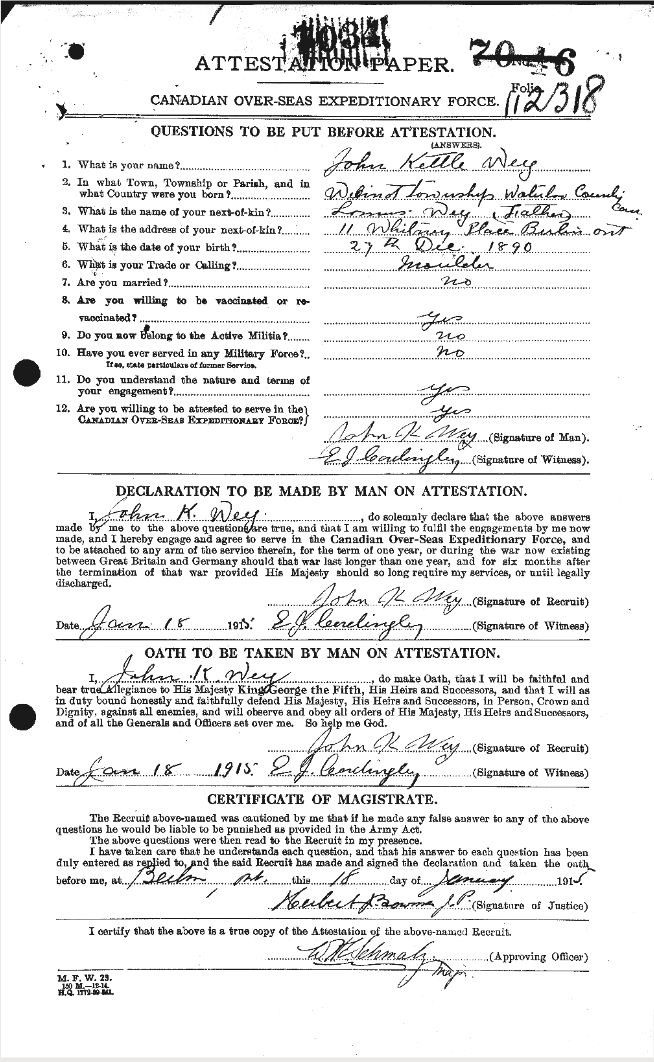 ATTESTATION PAPER.
Folio
12318
CANADIAN OVER-SEAS EXPEDITIONARY FORCE.
QUESTIONS TO BE PUT BEFORE ATTESTATION.
(ANSWERS).
1. What is your name? John Kettle Wey
2. In what Town, Township or Parish, and in
what Country were you born? Township Waterloo County
Can
3. What is the name of your next-of-kin? Wey (Father)
4. What is the address of your next-of-kin? 11 Whitney Place Berlin ont
5. What is the date of your birth? 27th Dec. 1890
6. What is your Trade or Calling? Moulder
7. Are you married? no
8. Are you willing to be vaccinated or re-
vaccinated? yes
9. Do you now belong to the Active Militia? no
10. Have you ever served in any Military Force? no
If so, state particulars of former Service.
11. Do you understand the nature and terms of
your engagement? yes
12. Are you willing to be attested to serve in the
CANADIAN OVER-SEAS EXPEDITIONARY FORCE? yes
John K Wey (Signature of Man).
E J Cardingley (Signature of Witness).
DECLARATION TO BE MADE BY MAN ON ATTESTATION.
I, John K. Wey, do solemnly declare that the above answers
made by me to the above questions are true, and that I am willing to fulfil the engagements by me now
made, and I hereby engage and agree to serve in the Canadian Over-Seas Expeditionary Force, and
to be attached to any arm of the service therein, for the term of one year, or during the war now existing
between Great Britain and Germany should that war last longer than one year, and for six months after
the termination of that war provided His Majesty should so long require my services, or until legally
discharged.
John K Wey (Signature of Recruit)
Date Jan 18 1915. E J Cardingley (Signature of Witness)
OATH TO BE TAKEN BY MAN ON ATTESTATION.
I, John K. Wey, do make Oath, that I will be faithful and
bear true Allegiance to His Majesty King George the Fifth, His Heirs and Successors, and that I will as
in duty bound honestly and faithfully defend His Majesty, His Heirs and Successors, in Person, Crown and
Dignity, against all enemies, and will observe and obey all orders of His Majesty, His Heirs and Successors,
and of all the Generals and Officers set over me. So help me God.
John K Wey (Signature of Recruit)
Date Jan 18 1915. E J Cardingley (Signature of Witness)
CERTIFICATE OF MAGISTRATE.
The Recruit above-named was cautioned by me that if he made any false answer to any of the above
questions he would be liable to be punished as provided in the Army Act.
The above questions were then read to the Recruit in my presence.
I have taken care that he understands each question, and that his answer to each question has been
duly entered as replied to, and the said Recruit has made and signed the declaration and taken the oath
before me, at Berlin, ont. this 18 day of January 1915
Herbert Bowman J.P. (Signature of Justice)
I certify that the above is a true copy of the Attestation of the above-named Recruit.
Schmalz (Approving Officer)
Major
M. F. W. 23.
150 M.—12-14.
H.Q. 1772-39-841.